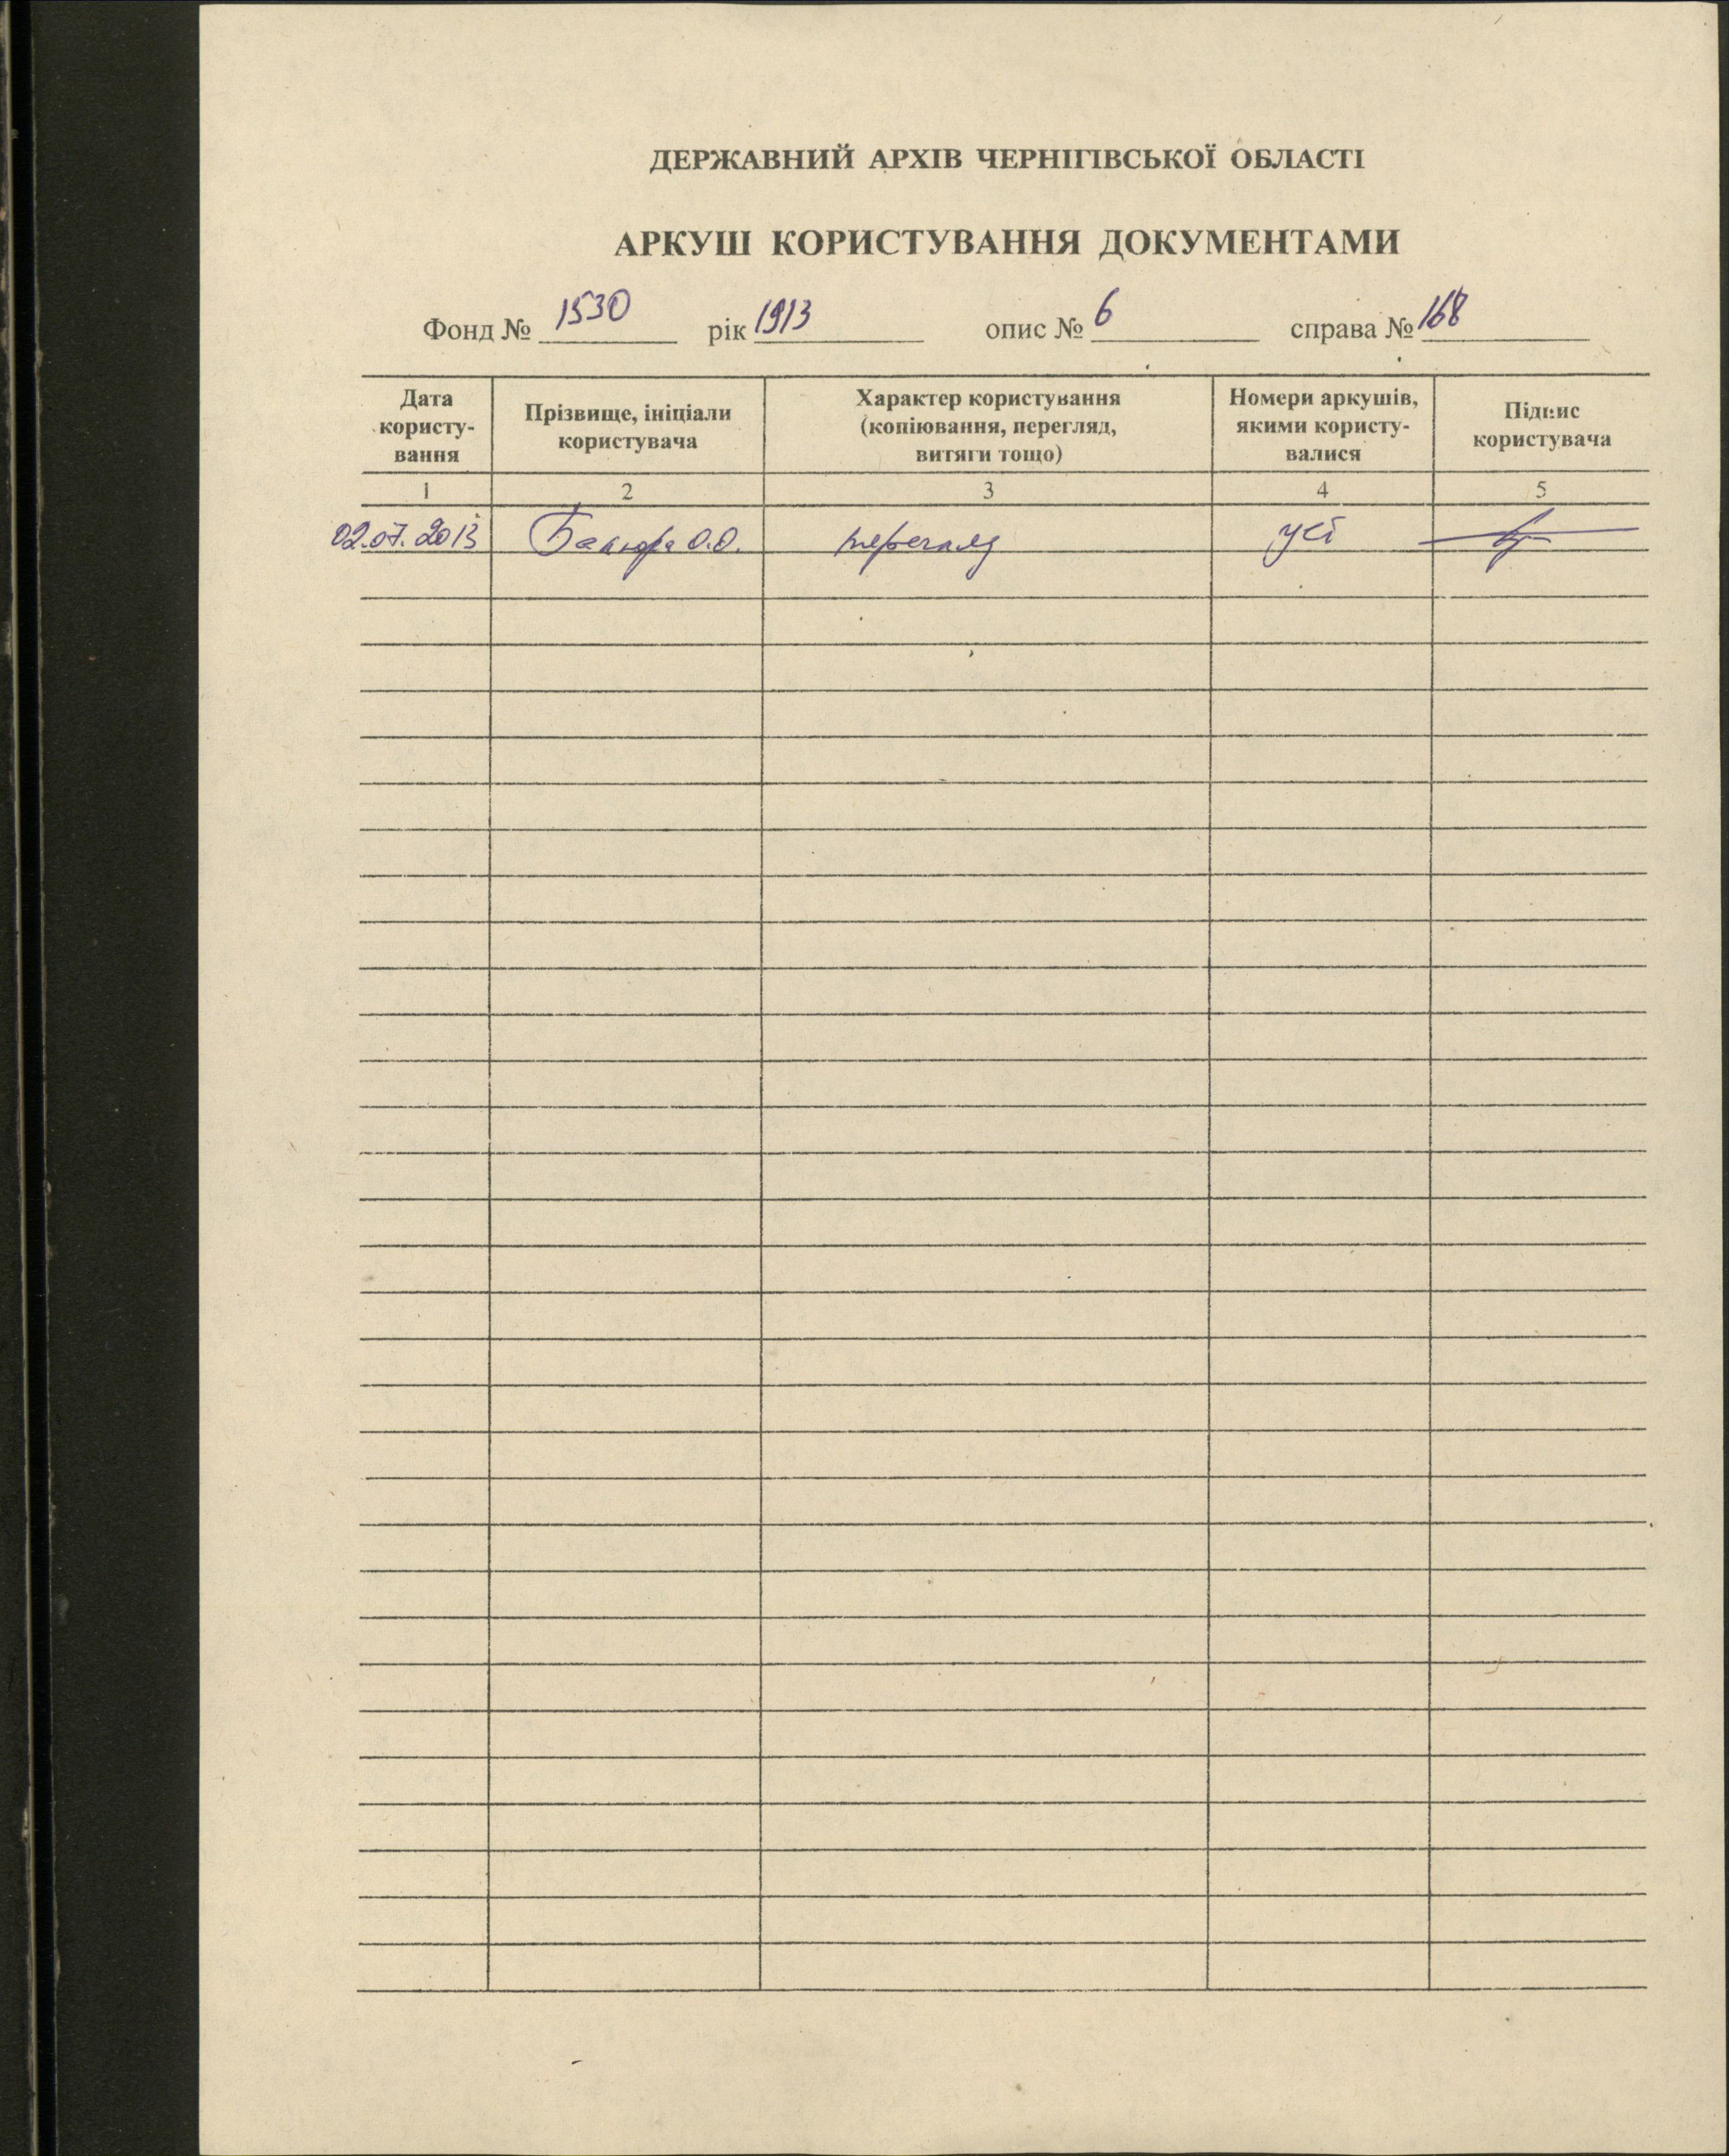 ДЕРЖАВНИЙ АРХІВ ЧЕРНІГІВСЬКОЇ ОБЛАСТІ
АРКУШ КОРИСТУВАННЯ ДОКУМЕНТАМИ
Фонд № 1530 рік 1913 опис № 6 справа № 168
Дата користу-вання Прізвище, ініціали користувача Характер користування (копіювання, перегляд, витяги тощо) Номери аркушів, якими користу-валися Підпис користувача
1 2 3 4 5
02.07.2013 О.О. перегляд усі